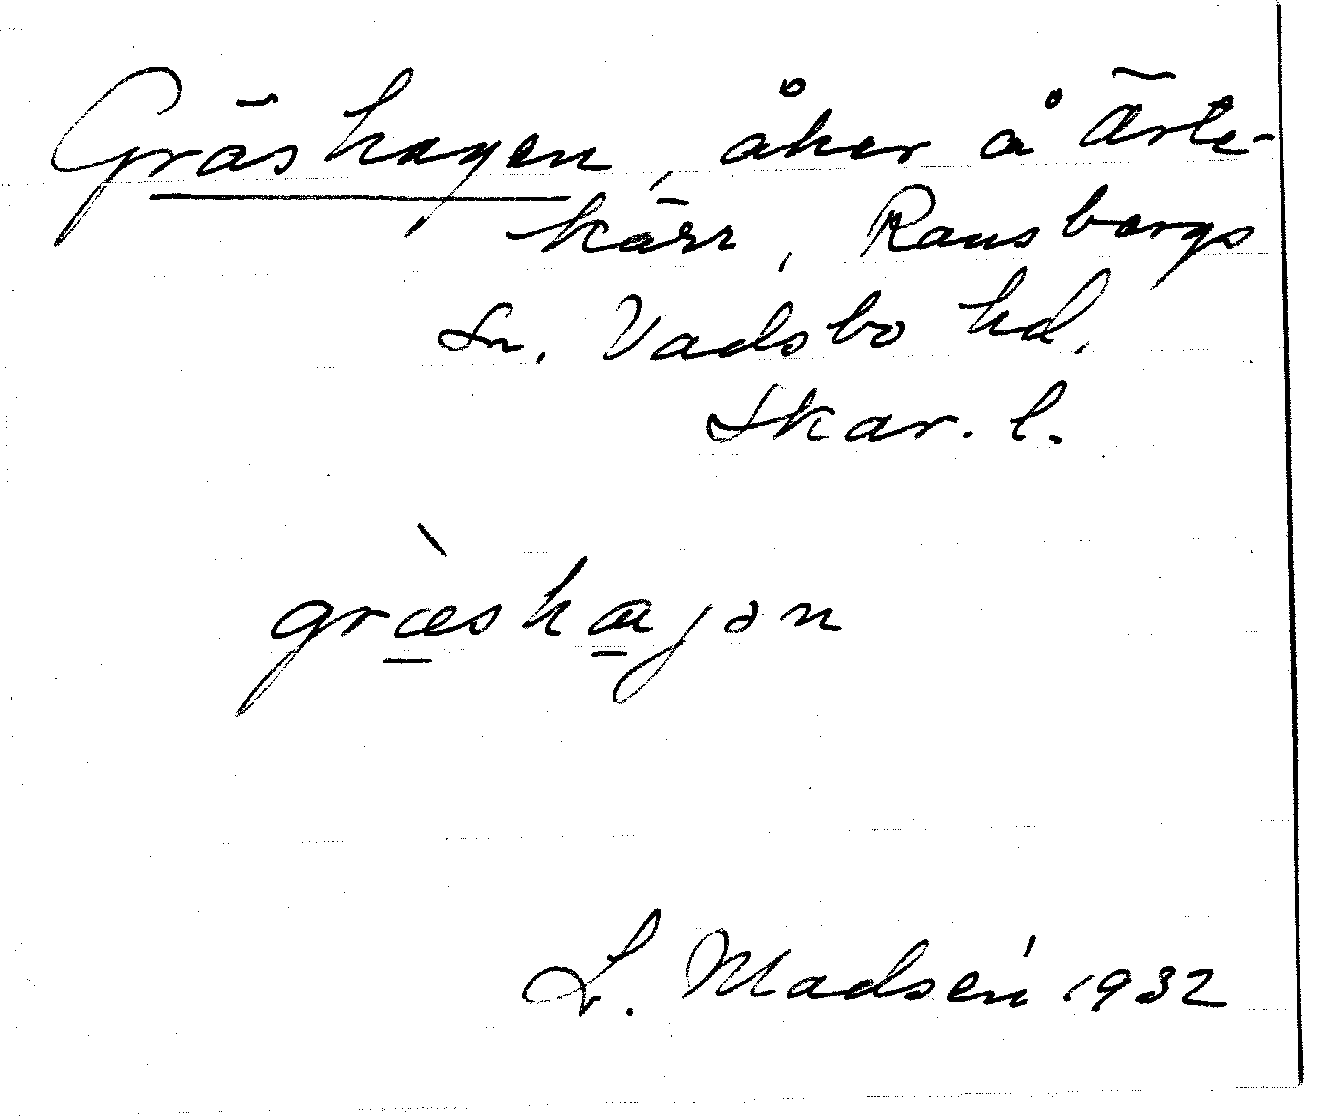 Gräshagen, åker å Ärte-
kärr, Ransbergs
Sn. Vadsbo hd.
Skar. l.
græ̀shaɡən
L. Madsén 1932